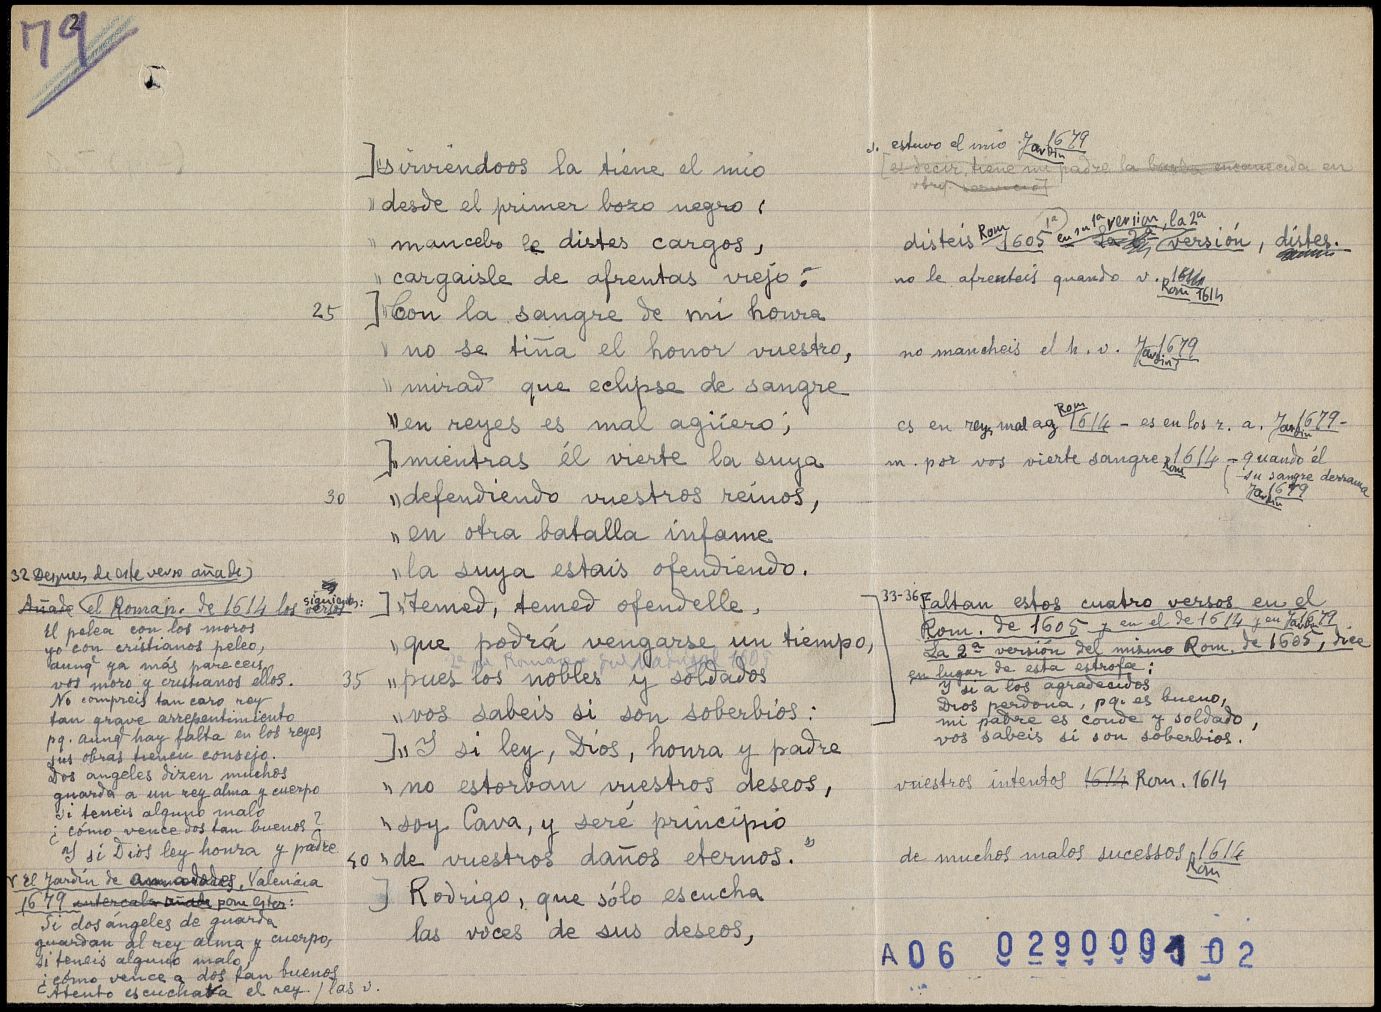 79
2
]"sirviéndoos la tiene el mio
"desde el primer bozo negro;
"mancebo le distes cargos,
"cargaisle de afrentas viejo:
25 ]"Con la sangre de mi honra
"no se tiña el honor vuestro,
"mirad que eclipse de sangre
"en reyes es mal agüero;
]"mientras él vierte la suya
30 "defendiendo vuestros reinos,
"en otra batalla infame
"la suya estais ofendiendo.
]"Temed, temed ofendelle,
"que podrá vengarse un tiempo,
35 "pues los nobles y soldados
"vos sabeis si son soberbios:
]"Y si ley, Dios, honra y padre
"no estorban vuestros deseos,
"soy Cava, y seré principio
40 "de vuestros daños eternos."
] Rodrigo, que sólo escucha
las voces de sus deseos,
estuvo el mio. Jardin 1679
[es decir, tiene mi padre la barba encanecida en
servicio]
disteis Rom 1605 1ª en su 1ª version, la 2ª
versión, distes.
no le afrenteis quando v. 1614
Rom 1614
no mancheis el h. v. Jardin 1679
es en reyes mal ag Rom 1614 - es en los r. a. Jardin 1679 -
m. por vos vierte sangre Rom 1614 - quando él
su sangre derrama
Jardin 1679
33-36 Faltan estos cuatro versos en el
Rom. de 1605 y en el de 1614 y en Jardin 1679
La 2ª versión del mismo Rom. de 1605, dice
en lugar de esta estrofa:
Y si a los agradecidos
Dios perdona, pq. es bueno,
mi padre es conde y soldado,
vos sabeis si son soberbios.
vuestros intentos 1614 Rom. 1614
de muchos malos sucessos 1614
Rom
32 Despues de este verso añade)
Añade el Roman. de 1614 los siguientes versos:
El pelea con los moros
yo con cristianos peleo,
aunq ya más pareceis
vos moro y cristianos ellos.
No compreis tan caro rey
tan grave arrepentimiento
pq. aunq hay falta en los reyes
sus obras tienen consejo.
Dos angeles dizen muchos
guarda a un rey alma y cuerpo
si teneis alguno malo
¿cómo vence dos tan buenos?
Y si Dios ley honra y padre
Y El Jardín de amadores, Valencia
1679 intercala añade pone estos:
Si dos ángeles de guarda
guardan al rey alma y cuerpo,
si teneis alguno malo
¿cómo vence a dos tan buenos
Atento escuchava el rey / las v.
A06 0290009 102